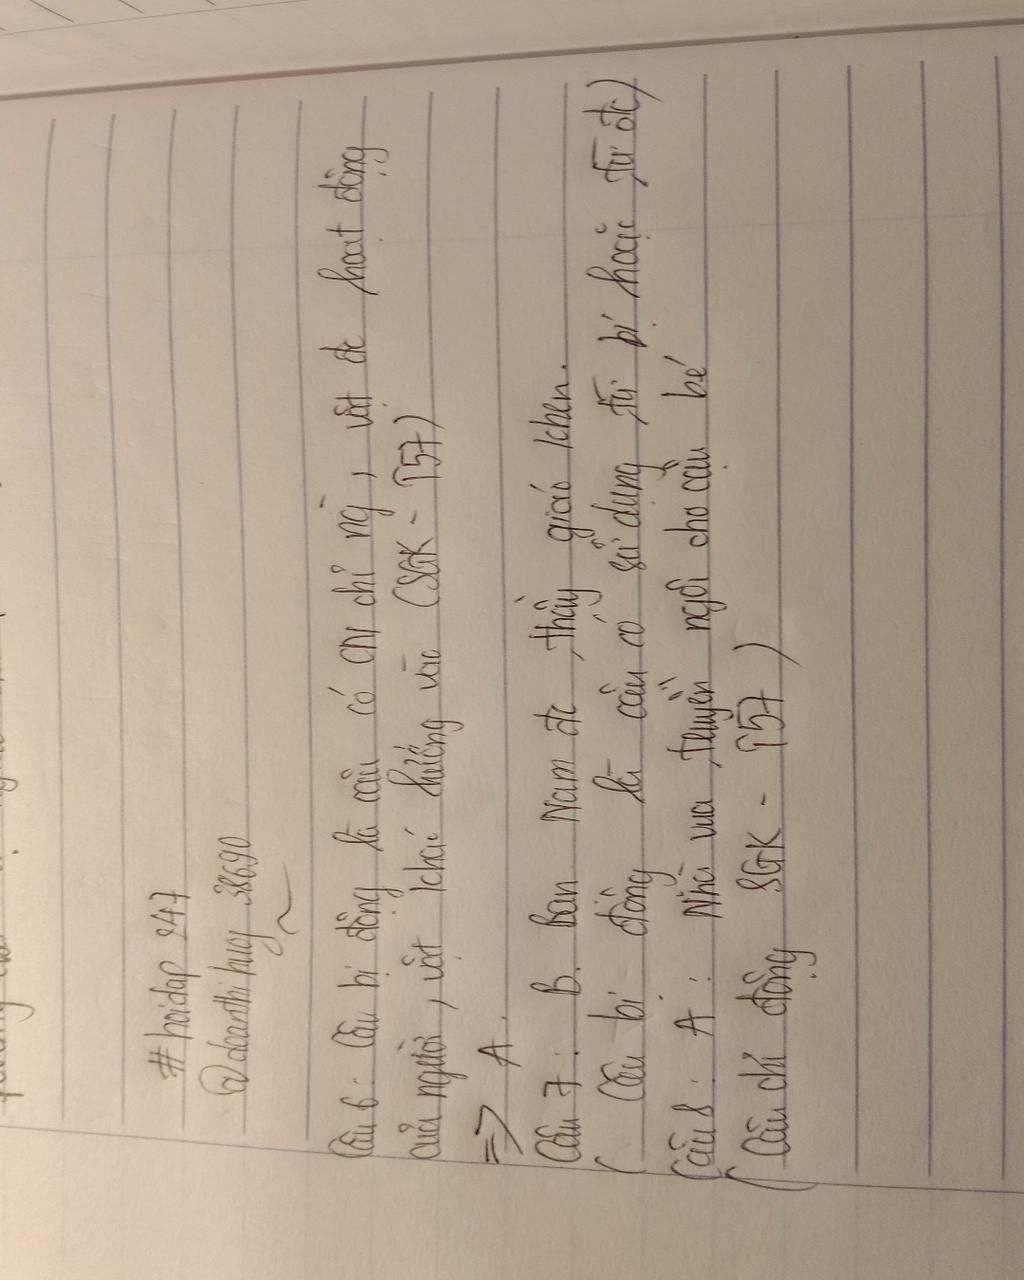 # hoidap 247
@doanthihuy 38690
Câu 6: Câu bị động là câu có CN chỉ ng', vật đc hoạt động
của người, vật khác hướng vào (SGK - T57)
=> A.
Câu 7: B. Bạn Nam đc thầy giáo khen.
( Câu bị động là câu có sử dụng từ bị hoặc từ đc)
Câu 8: A: Nhà vua truyền ngôi cho cậu bé
( Câu chủ động SGK - T57 )